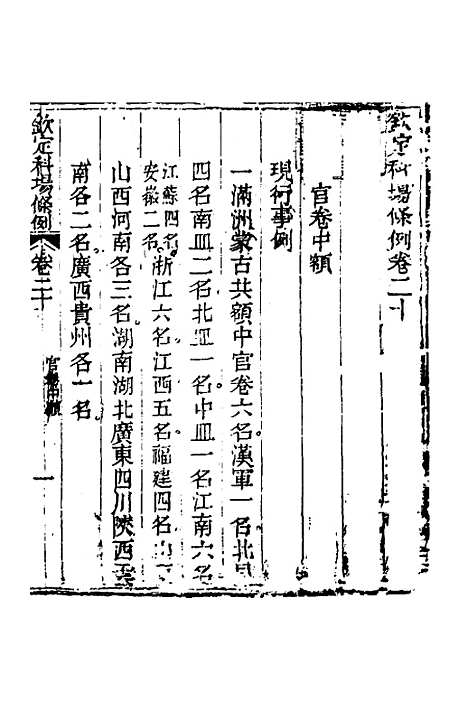 欽定科場條例卷二十
官卷中額
現行事例
一滿洲蒙古共額中官卷六名漢軍一名北
四名南皿二名北皿一名中皿一名江南六名
江蘇四名安徽二名浙江六名江西五名福建四名山
山西河南各三名湖南湖北廣東四川陝西雲
南各二名廣西貴州各一名
欽定科場條例 卷二十 官卷中額 一